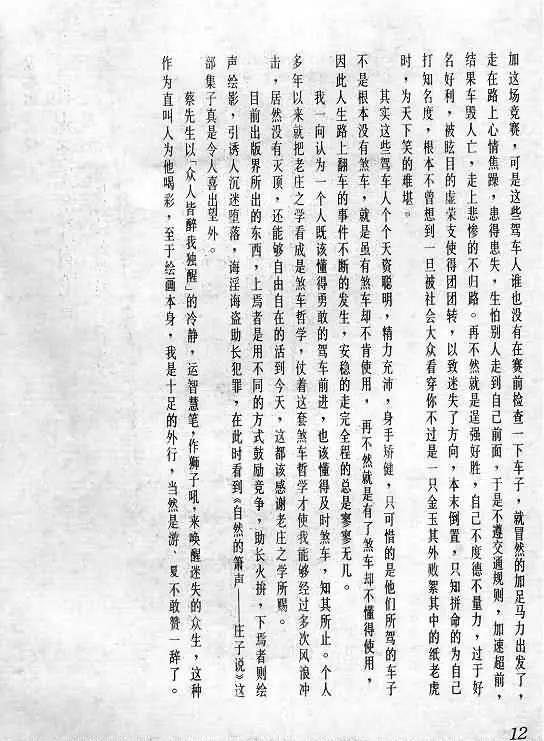 加这场竞赛，可是这些驾车人谁也没有在赛前检查一下车子，就冒然的加足马力出发了，
走在路上心情焦躁，患得患失，生怕别人走到自己前面，于是不遵交通规则，加速超前，
结果车毁人亡，走上悲惨的不归路。再不然就是逞强好胜，自己不度德不量力，过于好
名好利，被眩目的虚荣支使得团团转，以致迷失了方向，本末倒置，只知拼命的为自己
打知名度，根本不曾想到一旦被社会大众看穿你不过是一只金玉其外败絮其中的纸老虎
时，为天下笑的难堪。
其实这些驾车人个个天资聪明，精力充沛，身手矫健，只可惜的是他们所驾的车子
不是根本没有煞车，就是虽有煞车却不肯使用，再不然就是有了煞车却不懂得使用，
因此人生路上翻车的事件不断的发生，安稳的走完全程的总是寥寥无几。
我一向认为一个人既该懂得勇敢的驾车前进，也该懂得及时煞车，知其所止。个人
多年以来就把老庄之学看成是煞车哲学，仗着这套煞车哲学才使我能够经过多次风浪冲
击，居然没有灭顶，还能够自由自在的活到今天，这都该感谢老庄之学所赐。
目前出版界所出的东西，上焉者是用不同的方式鼓励竞争，助长火拼，下焉者则绘
声绘影，引诱人沉迷堕落，诲淫诲盗助长犯罪，在此时看到《自然的箫声——庄子说》这
部集子真是令人喜出望外。
蔡先生以「众人皆醉我独醒」的冷静，运智慧笔，作狮子吼，来唤醒迷失的众生，这种
作为直叫人为他喝彩，至于绘画本身，我是十足的外行，当然是游、夏不敢赞一辞了。
12